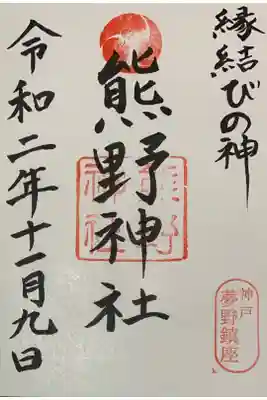 縁結びの神
熊野神社
熊野
神社
令和二年十一月九日
神戸
夢野鎮座